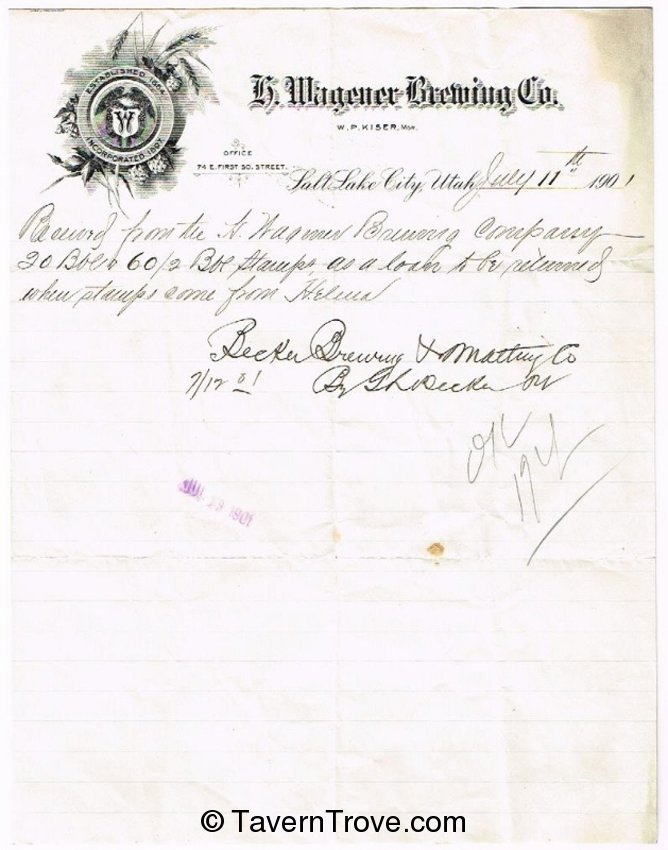 ESTABLISHED 1864
W
INCORPORATED 1897
H. Wagener Brewing Co.
W. P. KISER, MGR.
OFFICE
74 E. FIRST SO. STREET.
Salt Lake City, Utah, July 11th 1901
Received from the H. Wagener Brewing Company
20 Bbl & 60 1/2 Bbl Stamps, as a loan to be returned
when stamps come from Helena
Becker Brewing & Malting Co
7/12 01 By
OK
JUL 29 1901
© TavernTrove.com